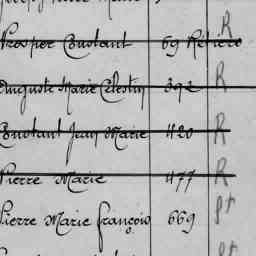 Prosper Constant 69 R
Auguste Marie Célestin 392 R
Constant Jean Marie 420 R
Pierre Marie 477 R
Pierre Marie françois 669 pt